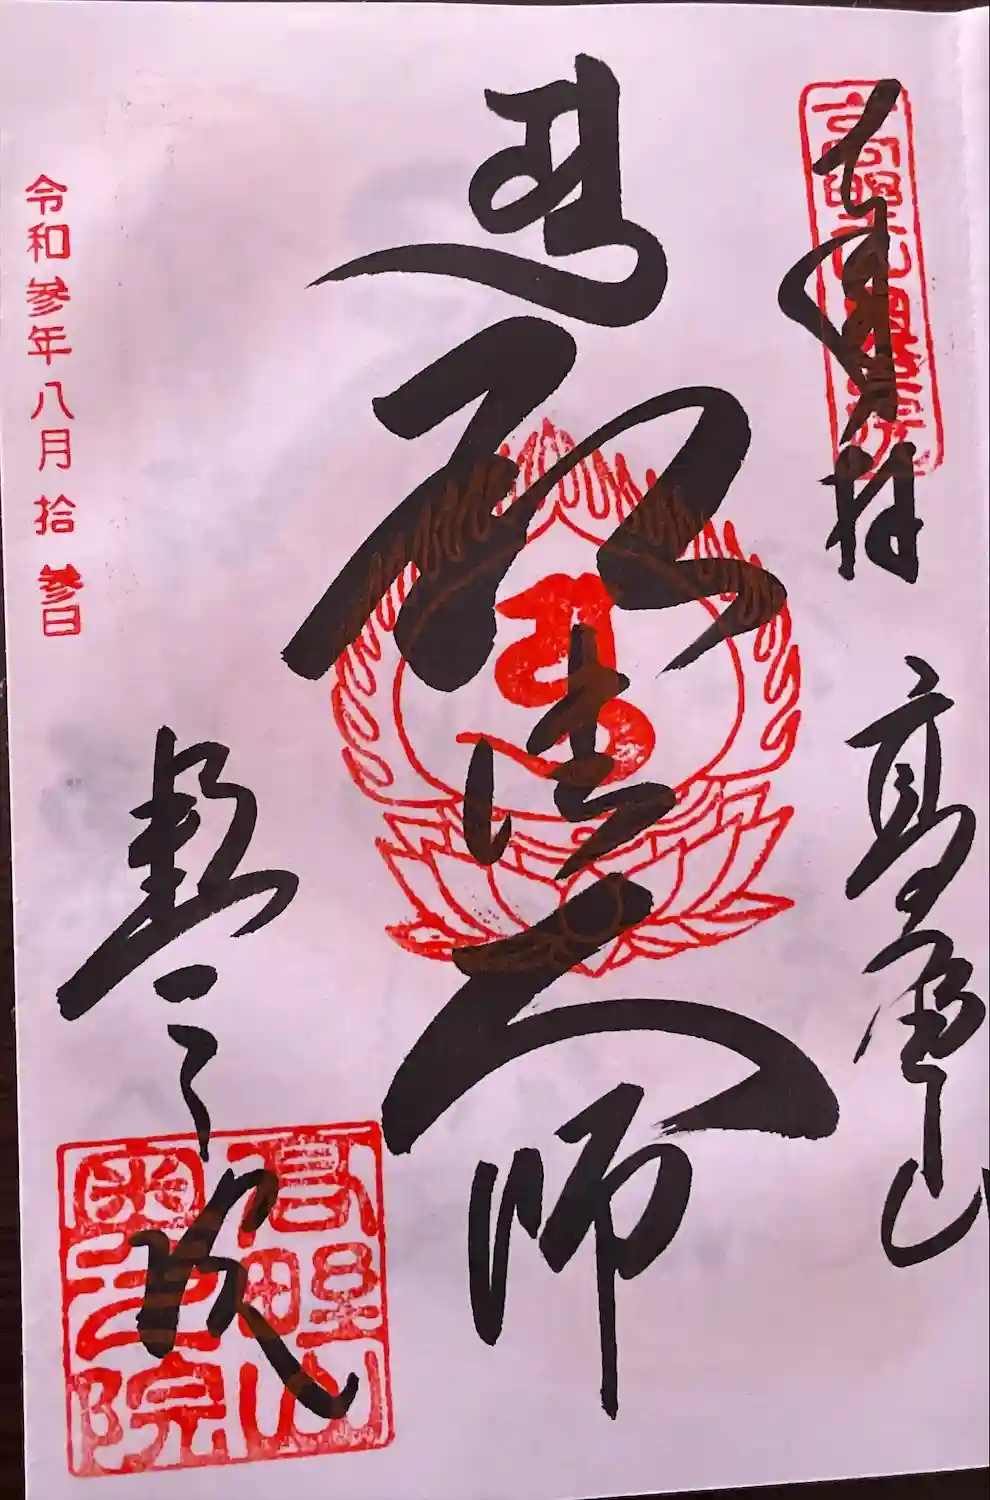 奉拝 高野山
弘法大師
奥之院
令和参年八月拾参日
高野山
奥之院